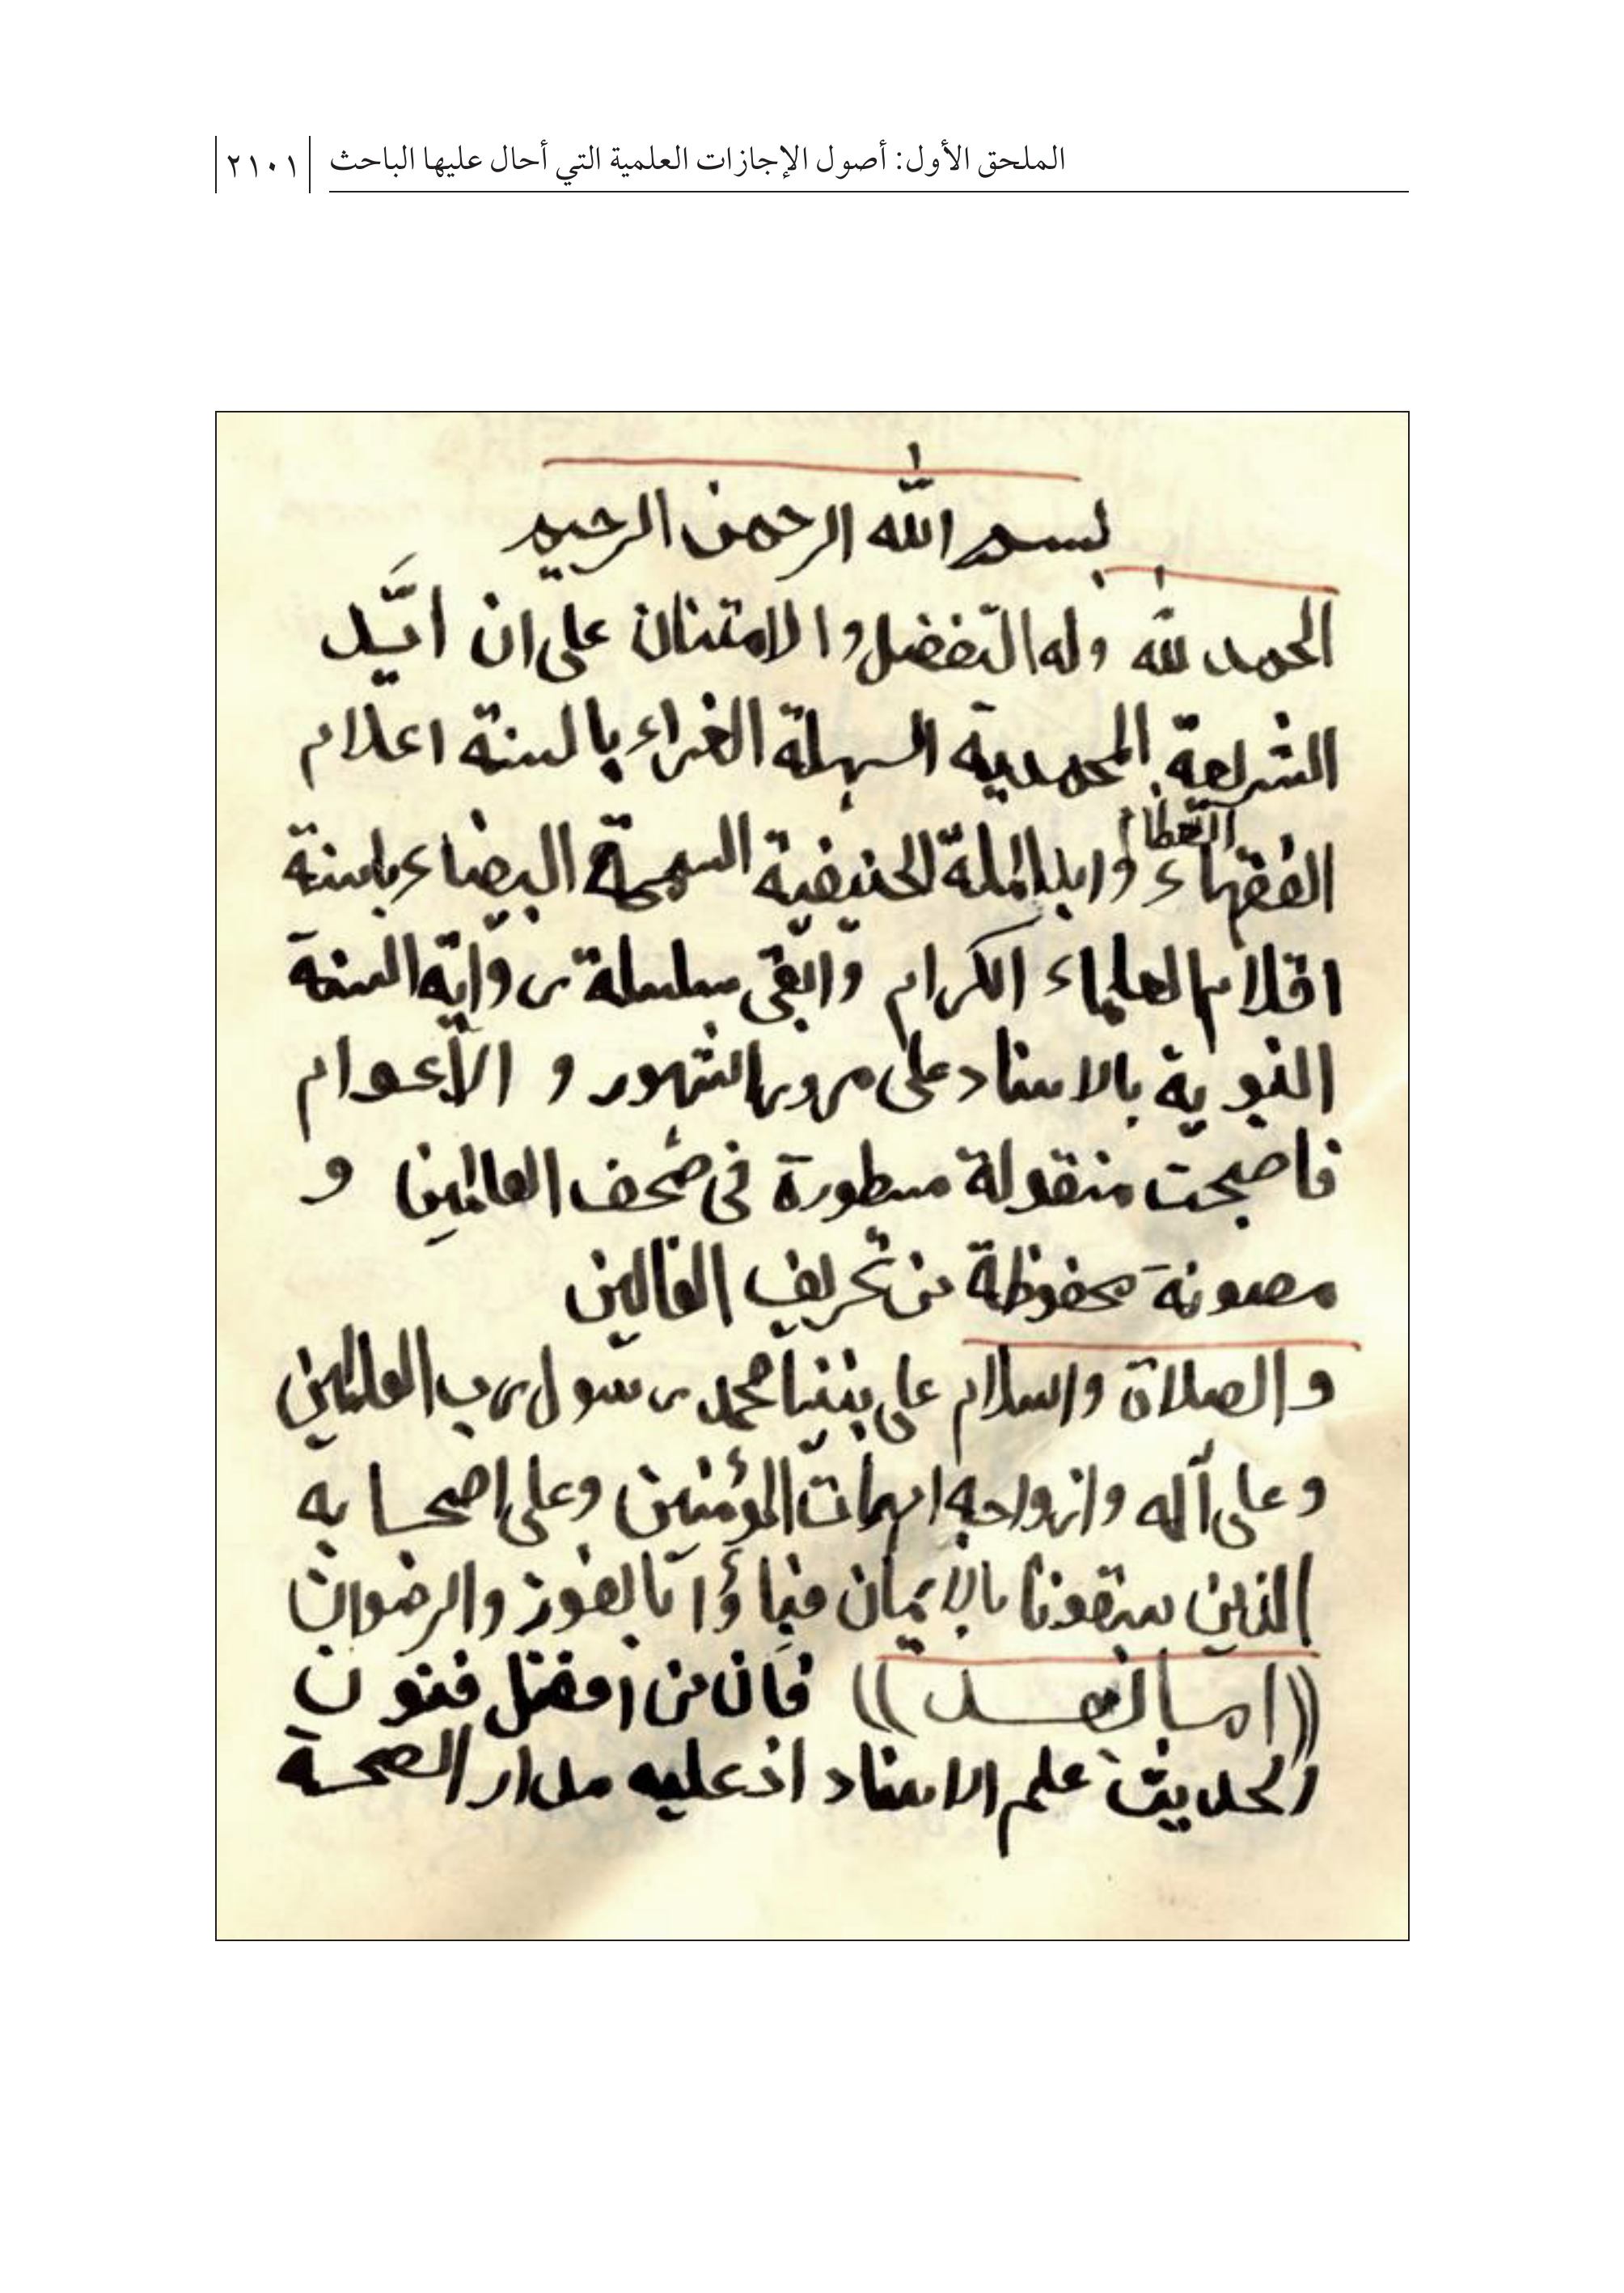 الملحق الأول: أصول الإجازات العلمية التي أحال عليها الباحث ٢١٠١
بسم الله الرحمن الرحيم
الحمد لله وله التّفضل والامتنان على ان ايَّد
الشريعة المحمدية السهلة الغراء بالسنة اعلام
الفقهاء العظام وايد الملة الحنيفية السمحة البيضاء باسنة
اقلام العلماء الكرام وابقى سلسلة رواية السنة
النبوية بالاسناد على مرور الشهور و الأعوام
فاصبحت منقولة مسطورة في صُحف العالمين و
مصونة محفوظة من تحريف الغالين
والصلاة والسلام على نبينا محمد رسول رب العالمين
وعلى آله وازواجه امهات المؤمنين وعلى اصحابه
الذين سبقونا بالإيمان فباؤا بالفوز والرضوان
((اما بعد)) فان من افضل فنون
الحديث علم الاسناد اذ عليه مدار الصحة